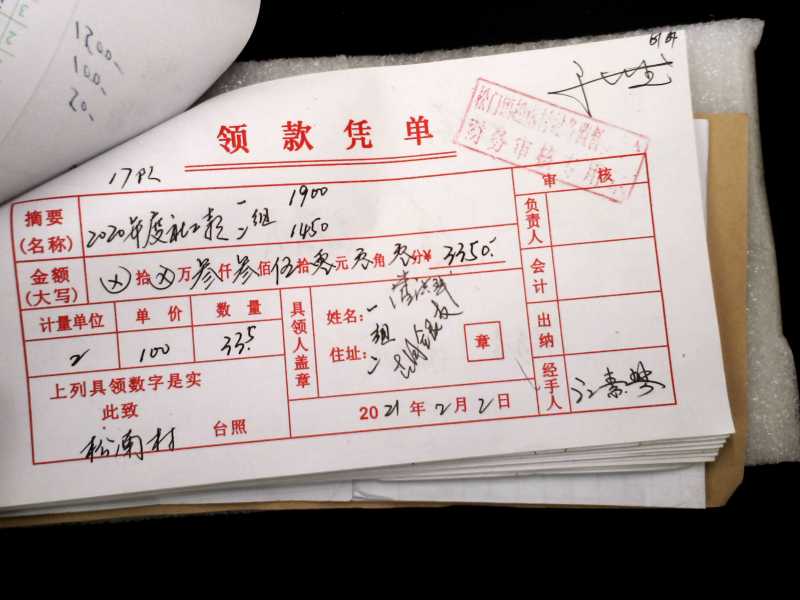 1200.-
100.-
20.-
领款凭单
松门
财务审核专用
摘要
(名称)
2020年度社工款 一 二 组 1900 1450
审核
负责人
金额
(大写)
⊗拾⊗万叁仟叁佰伍拾零元零角零分¥ 3350.-
会计
计量单位 单价 数量
2 100 33.5
具领人盖章
姓名:一
组
住址:二
章
出纳
上列具领数字是实
此致
松南村 台照
2021年2月2日
经手人